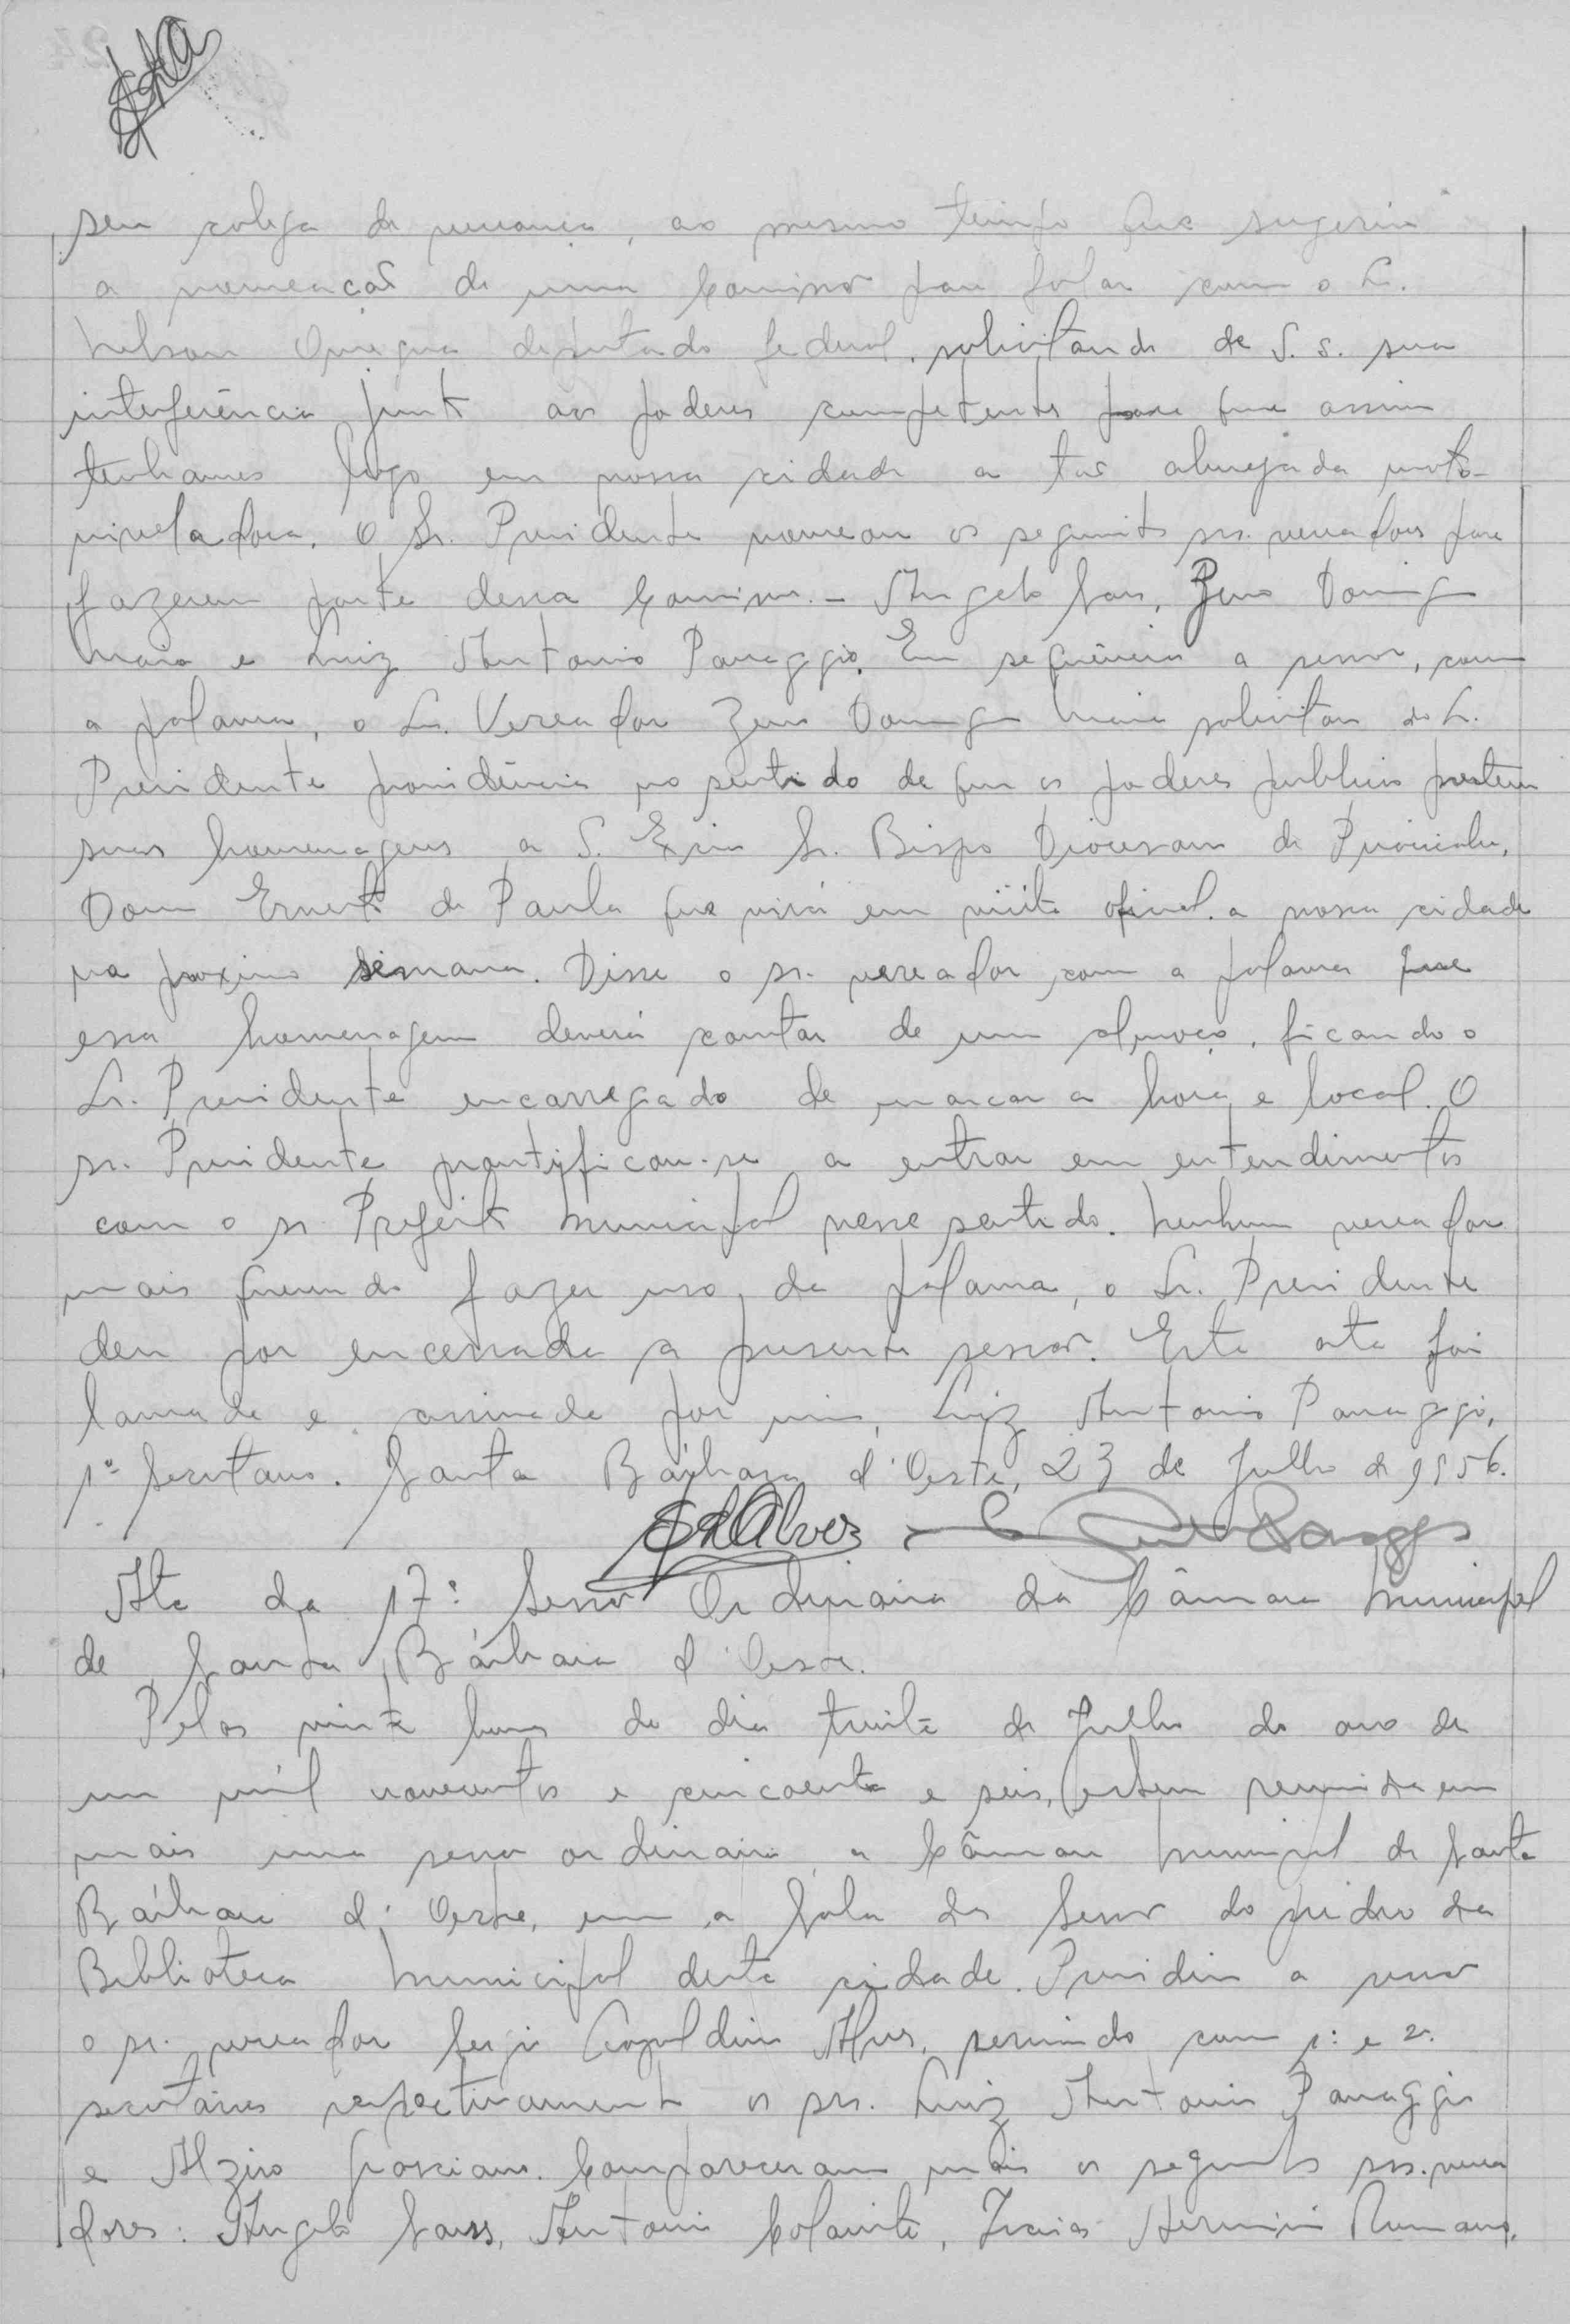 seu colega de vereança, ao mesmo tempo que sugeria
a nomeação de uma Comissão para falar com o Sr.
Nelson Omegna deputado federal, solicitando de S. s. sua
interferência junto aos poderes competentes para que assim
tenhamos logo em nossa cidade a tão almejada moto-
niveladora. O Sr. Presidente nomeou os seguintes srs. vereadores para
fazerem parte dessa Comissão. - Angelo Sans, Zeno Domingos
Maia e Luiz Antonio Panaggio. Em sequência a sessão, com
a palavra, o Sr. Vereador Zeno Domingos Maia solicitou do Sr.
Presidente providências no sentido de que os poderes publicos prestem
suas homenagens a S. Excia Sr. Bispo Diocesano de Piracicaba,
Dom Ernesto de Paula que virá em visita oficial a nossa cidade
na proxima semana. Disse o sr. vereador com a palavra que
essa homenagem deverá constar de um almoço, ficando o
Sr. Presidente encarregado de marcar a hora e local. O
sr. Presidente prontificou-se a entrar em entendimentos
com o sr Prefeito Municipal nesse sentido. Nenhum vereador
mais querendo fazer uso da palavra, o Sr. Presidente
deu por encerrada a presente sessão. Esta ata foi
lavrada e assinada por mim, Luiz Antonio Panaggio,
1º Secretario. Santa Bárbara d'Oeste, 23 de Julho de 1956.
Alves
Ata da 17ª Sessão Ordinaria da Câmara Municipal
de Santa Bárbara d'Oeste.
Pelas vinte horas do dia trinta de Julho do ano de
um mil novecentos e cincoenta e seis, esteve reunida em
mais uma sessão ordinaria, a Câmara Municipal de Santa
Bárbara d'Oeste, em a Sala das Sessões do prédio da
Biblioteca Municipal desta cidade. Presidiu a sessão
o sr. vereador Sergio Leopoldino Alves, servindo com 1º e 2º
secretários respectivamente os srs. Luiz Antonio Panaggio
e Alziro Compareceram mais os seguintes srs. verea
dores: Angelo Sans, Antonio Isaias Herminio Romano,